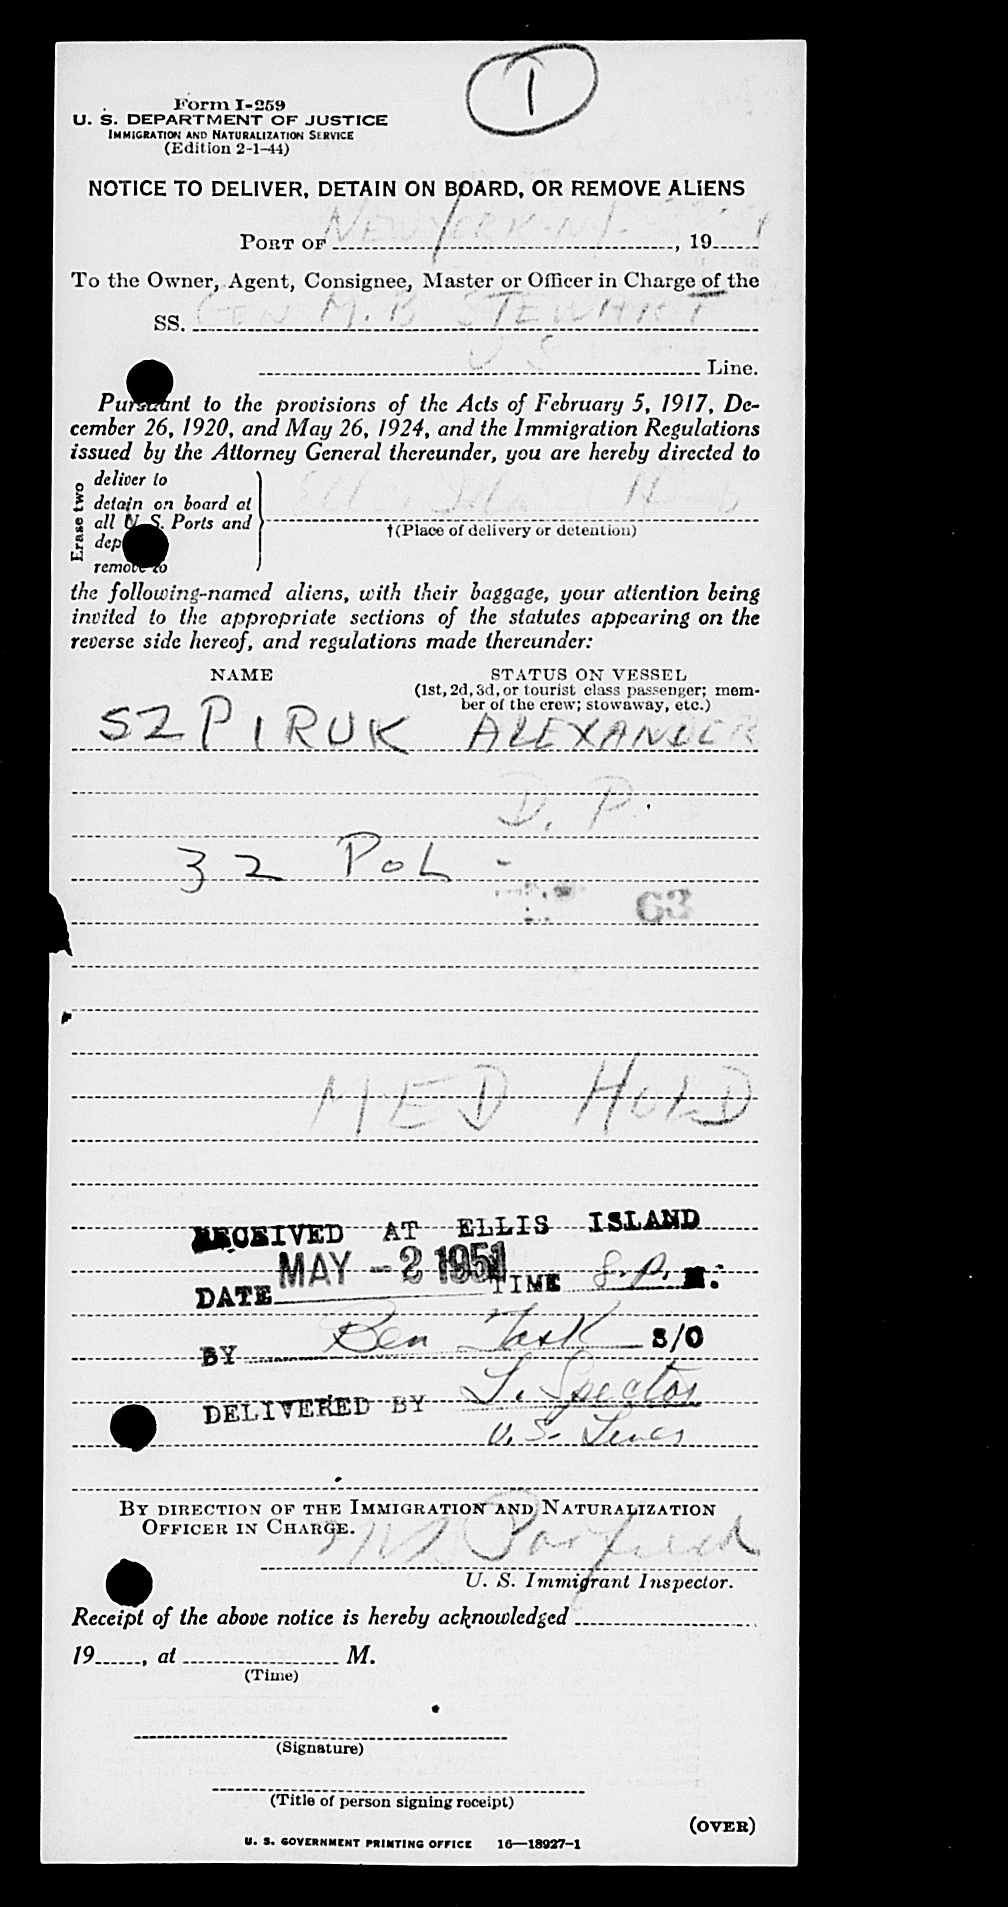 1
Form I-259
U. S. DEPARTMENT OF JUSTICE
IMMIGRATION AND NATURALIZATION SERVICE
(Edition 2-1-44)
NOTICE TO DELIVER, DETAIN ON BOARD, OR REMOVE ALIENS
PORT OF NEW YORK N.Y. , 19
To the Owner, Agent, Consignee, Master or Officer in Charge of the
SS. GEN M. B STEWART
U S Line.
Pursuant to the provisions of the Acts of February 5, 1917, De-
cember 26, 1920, and May 26, 1924, and the Immigration Regulations
issued by the Attorney General thereunder, you are hereby directed to
Erase two
deliver to
detain on board at
all U. S. Ports and
dep
remove to
†(Place of delivery or detention)
the following-named aliens, with their baggage, your attention being
invited to the appropriate sections of the statutes appearing on the
reverse side hereof, and regulations made thereunder:
NAME STATUS ON VESSEL
(1st, 2d, 3d, or tourist class passenger; mem-
ber of the crew; stowaway, etc.)
SZPIRUK ALEXANDER
D. P.
32 POL -
63
MED HOLD
RECEIVED AT ELLIS ISLAND
DATE MAY - 2 1951 TIME 8. P. M.
BY Ben Task S/O
DELIVERED BY L. Spector
U. S. Lines
BY DIRECTION OF THE IMMIGRATION AND NATURALIZATION
OFFICER IN CHARGE.
U. S. Immigrant Inspector.
Receipt of the above notice is hereby acknowledged
19 , at M.
(Time)
(Signature)
(Title of person signing receipt)
(OVER)
U. S. GOVERNMENT PRINTING OFFICE 16—18927-1